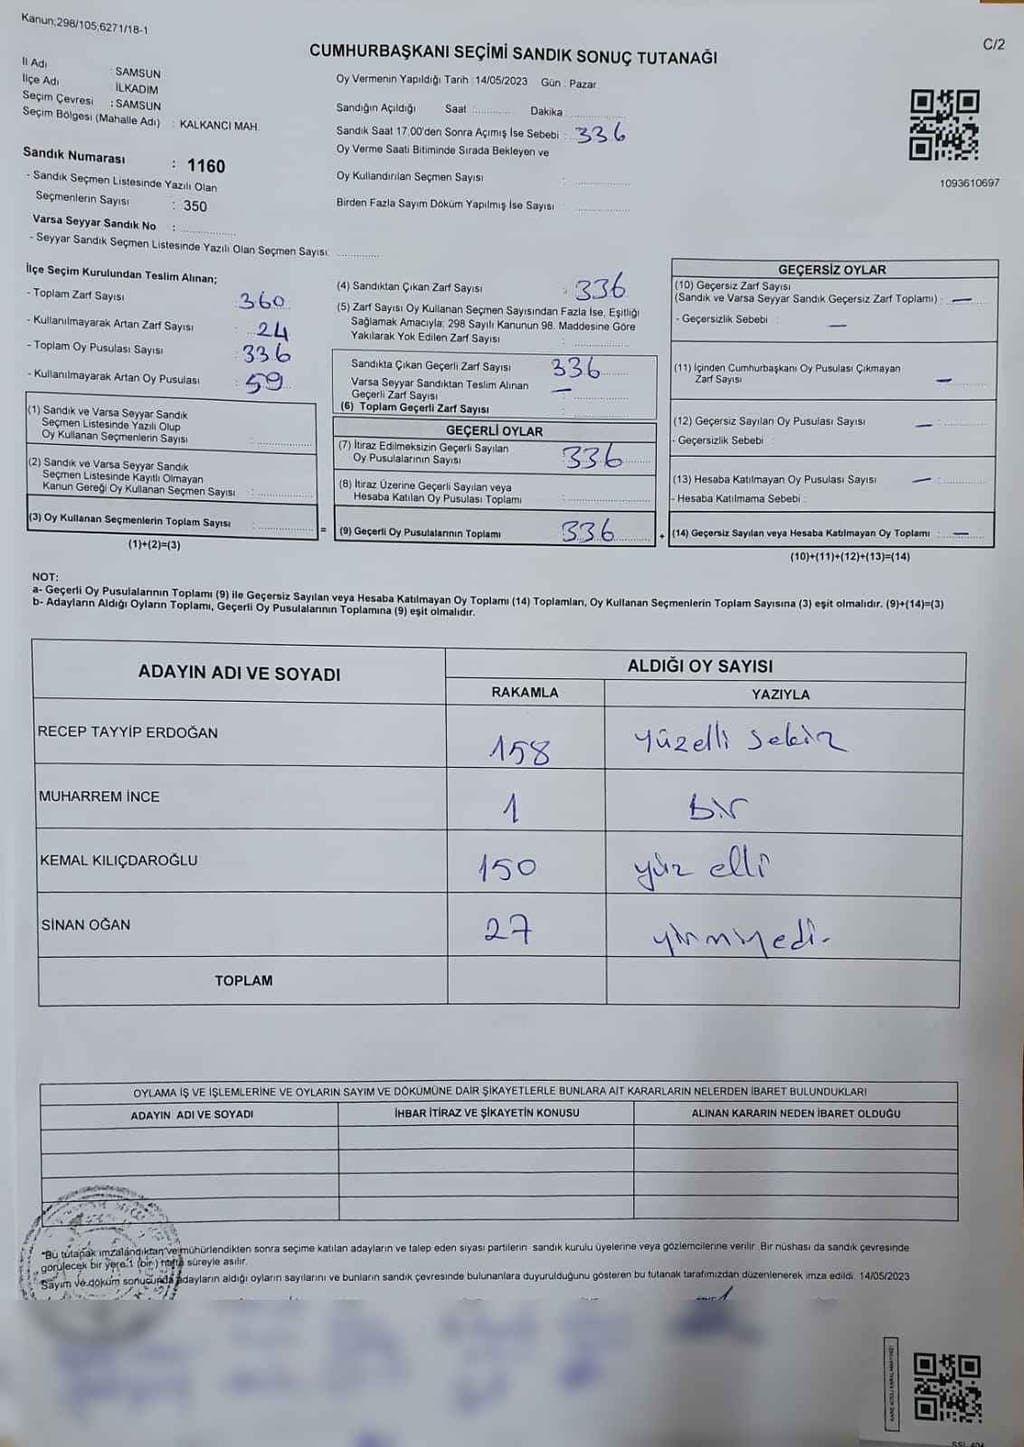 Kanun;298/105;6271/18-1
C/2
CUMHURBAŞKANI SEÇİMİ SANDIK SONUÇ TUTANAĞI
İl Adı : SAMSUN
İlçe Adı İLKADIM
Seçim Çevresi : SAMSUN
Seçim Bölgesi (Mahalle Adı) : KALKANCI MAH.
Sandık Numarası : 1160
- Sandık Seçmen Listesinde Yazılı Olan
Seçmenlerin Sayısı : 350
Varsa Seyyar Sandık No :
- Seyyar Sandık Seçmen Listesinde Yazılı Olan Seçmen Sayısı:
Oy Vermenin Yapıldığı Tarih : 14/05/2023 Gün : Pazar
Sandığın Açıldığı Saat Dakika
Sandık Saat 17.00'den Sonra Açımış İse Sebebi : 336
Oy Verme Saati Bitiminde Sırada Bekleyen ve
Oy Kullandırılan Seçmen Sayısı :
Birden Fazla Sayım Döküm Yapılmış İse Sayısı
1093610697
İlçe Seçim Kurulundan Teslim Alınan;
- Toplam Zarf Sayısı 360
- Kullanılmayarak Artan Zarf Sayısı : 24
- Toplam Oy Pusulası Sayısı : 336
- Kullanılmayarak Artan Oy Pusulası : 59
(1) Sandık ve Varsa Seyyar Sandık
Seçmen Listesinde Yazılı Olup
Oy Kullanan Seçmenlerin Sayısı :
(2) Sandık ve Varsa Seyyar Sandık
Seçmen Listesinde Kayıtlı Olmayan
Kanun Gereği Oy Kullanan Seçmen Sayısı :
(3) Oy Kullanan Seçmenlerin Toplam Sayısı :
(1)+(2)=(3)
(4) Sandıktan Çıkan Zarf Sayısı : 336
(5) Zarf Sayısı Oy Kullanan Seçmen Sayısından Fazla İse, Eşitliği
Sağlamak Amacıyla; 298 Sayılı Kanunun 98. Maddesine Göre
Yakılarak Yok Edilen Zarf Sayısı :
Sandıkta Çıkan Geçerli Zarf Sayısı 336
Varsa Seyyar Sandıktan Teslim Alınan
Geçerli Zarf Sayısı : —
(6) Toplam Geçerli Zarf Sayısı :
GEÇERLİ OYLAR
(7) İtiraz Edilmeksizin Geçerli Sayılan
Oy Pusulalarının Sayısı 336
(8) İtiraz Üzerine Geçerli Sayılan veya
Hesaba Katılan Oy Pusulası Toplamı :
= (9) Geçerli Oy Pusulalarının Toplamı 336
GEÇERSİZ OYLAR
(10) Geçersiz Zarf Sayısı
(Sandık ve Varsa Seyyar Sandık Geçersiz Zarf Toplamı) : —
- Geçersizlik Sebebi : —
(11) İçinden Cumhurbaşkanı Oy Pusulası Çıkmayan
Zarf Sayısı —
(12) Geçersiz Sayılan Oy Pusulası Sayısı : —
- Geçersizlik Sebebi :
(13) Hesaba Katılmayan Oy Pusulası Sayısı : —
- Hesaba Katılmama Sebebi :
+ (14) Geçersiz Sayılan veya Hesaba Katılmayan Oy Toplamı : —
(10)+(11)+(12)+(13)=(14)
NOT:
a- Geçerli Oy Pusulalarının Toplamı (9) ile Geçersiz Sayılan veya Hesaba Katılmayan Oy Toplamı (14) Toplamları, Oy Kullanan Seçmenlerin Toplam Sayısına (3) eşit olmalıdır. (9)+(14)=(3)
b- Adayların Aldığı Oyların Toplamı, Geçerli Oy Pusulalarının Toplamına (9) eşit olmalıdır.
ADAYIN ADI VE SOYADI ALDIĞI OY SAYISI
RAKAMLA YAZIYLA
RECEP TAYYİP ERDOĞAN 158 yüzelli sekiz
MUHARREM İNCE 1 bir
KEMAL KILIÇDAROĞLU 150 yüz elli
SİNAN OĞAN 27 yirmiyedi
TOPLAM
OYLAMA İŞ VE İŞLEMLERİNE VE OYLARIN SAYIM VE DÖKÜMÜNE DAİR ŞİKAYETLERLE BUNLARA AİT KARARLARIN NELERDEN İBARET BULUNDUKLARI
ADAYIN ADI VE SOYADI İHBAR İTİRAZ VE ŞİKAYETİN KONUSU ALINAN KARARIN NEDEN İBARET OLDUĞU
*Bu tutanak imzalandıktan ve mühürlendikten sonra seçime katılan adayların ve talep eden siyasi partilerin sandık kurulu üyelerine veya gözlemcilerine verilir. Bir nüshası da sandık çevresinde
görülecek bir yere 1 (bir) hafta süreyle asılır.
Sayım ve döküm sonucunda adayların aldığı oyların sayılarını ve bunların sandık çevresinde bulunanlara duyurulduğunu gösteren bu tutanak tarafımızdan düzenlenerek imza edildi. 14/05/2023